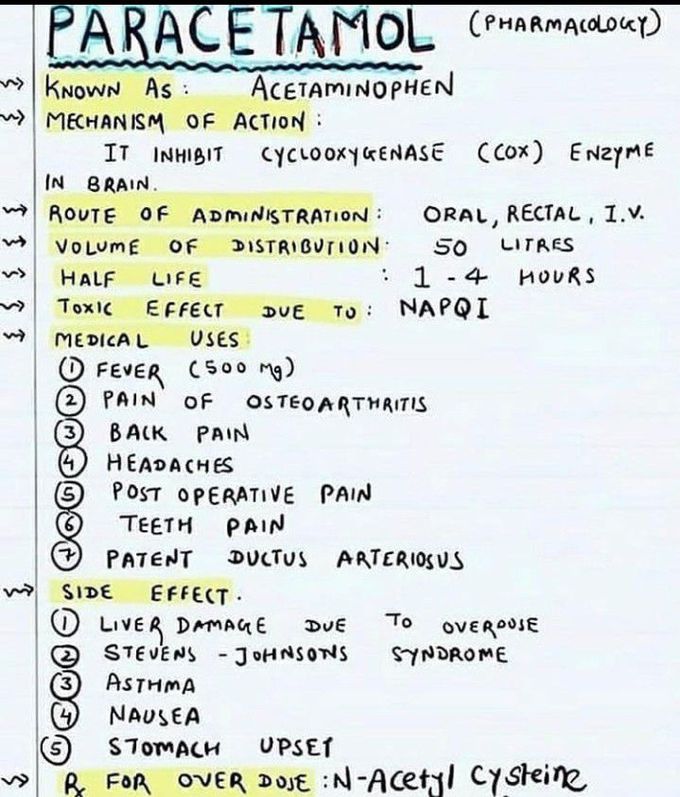 PARACETAMOL (PHARMACOLOGY)
KNOWN AS: ACETAMINOPHEN
MECHANISM OF ACTION:
IT INHIBIT CYCLOOXYGENASE (COX) ENZYME
IN BRAIN.
ROUTE OF ADMINISTRATION: ORAL, RECTAL, I.V.
VOLUME OF DISTRIBUTION: 50 LITRES
HALF LIFE : 1-4 HOURS
TOXIC EFFECT DUE TO: NAPQI
MEDICAL USES:
① FEVER (500 mg)
② PAIN OF OSTEOARTHRITIS
③ BACK PAIN
④ HEADACHES
⑤ POST OPERATIVE PAIN
⑥ TEETH PAIN
⑦ PATENT DUCTUS ARTERIOSUS
SIDE EFFECT.
① LIVER DAMAGE DUE TO OVERDOSE
② STEVENS-JOHNSONS SYNDROME
③ ASTHMA
④ NAUSEA
⑤ STOMACH UPSET
℞ FOR OVER DOSE: N-Acetyl Cysteine